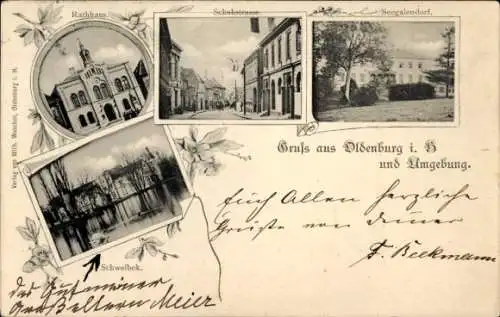 Rathhaus.
Schuhstrasse.
Seegalendorf.
Gruss aus Oldenburg i. H
und Umgebung.
Euch Allen herzliche
Grüsse von deiner
F. Beckmann
Schwelbek.
das Gut meiner
Großeltern Meier
Verlag von Wilh.
Oldenburg i. H.